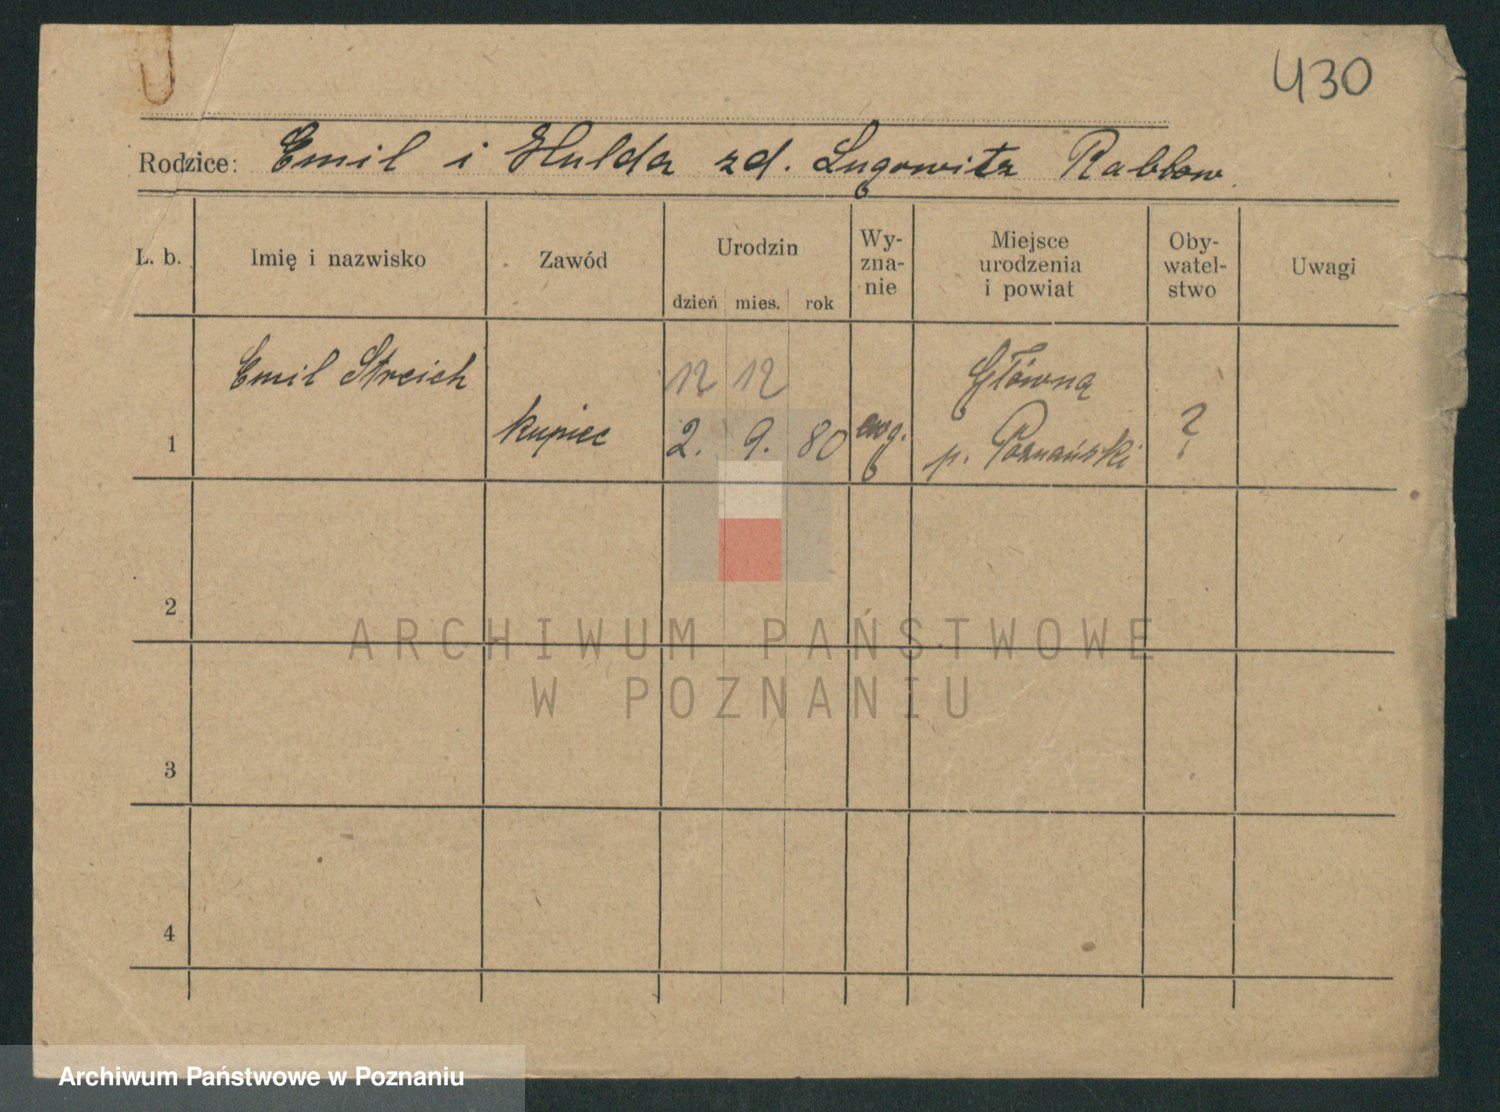 430
Rodzice: Emil i Hulda zd. Lugowitz Rabbow.
L. b. Imię i nazwisko Zawód Urodzin Wy- Miejsce Oby- Uwagi
zna- urodzenia watel-
nie i powiat stwo
dzień mies. rok
Emil Streich 12 12 Główną
1 kupiec 2. 9. 80 ewg. p. Poznański ?
2
3
4
ARCHIWUM PAŃSTWOWE
W POZNANIU
Archiwum Państwowe w Poznaniu